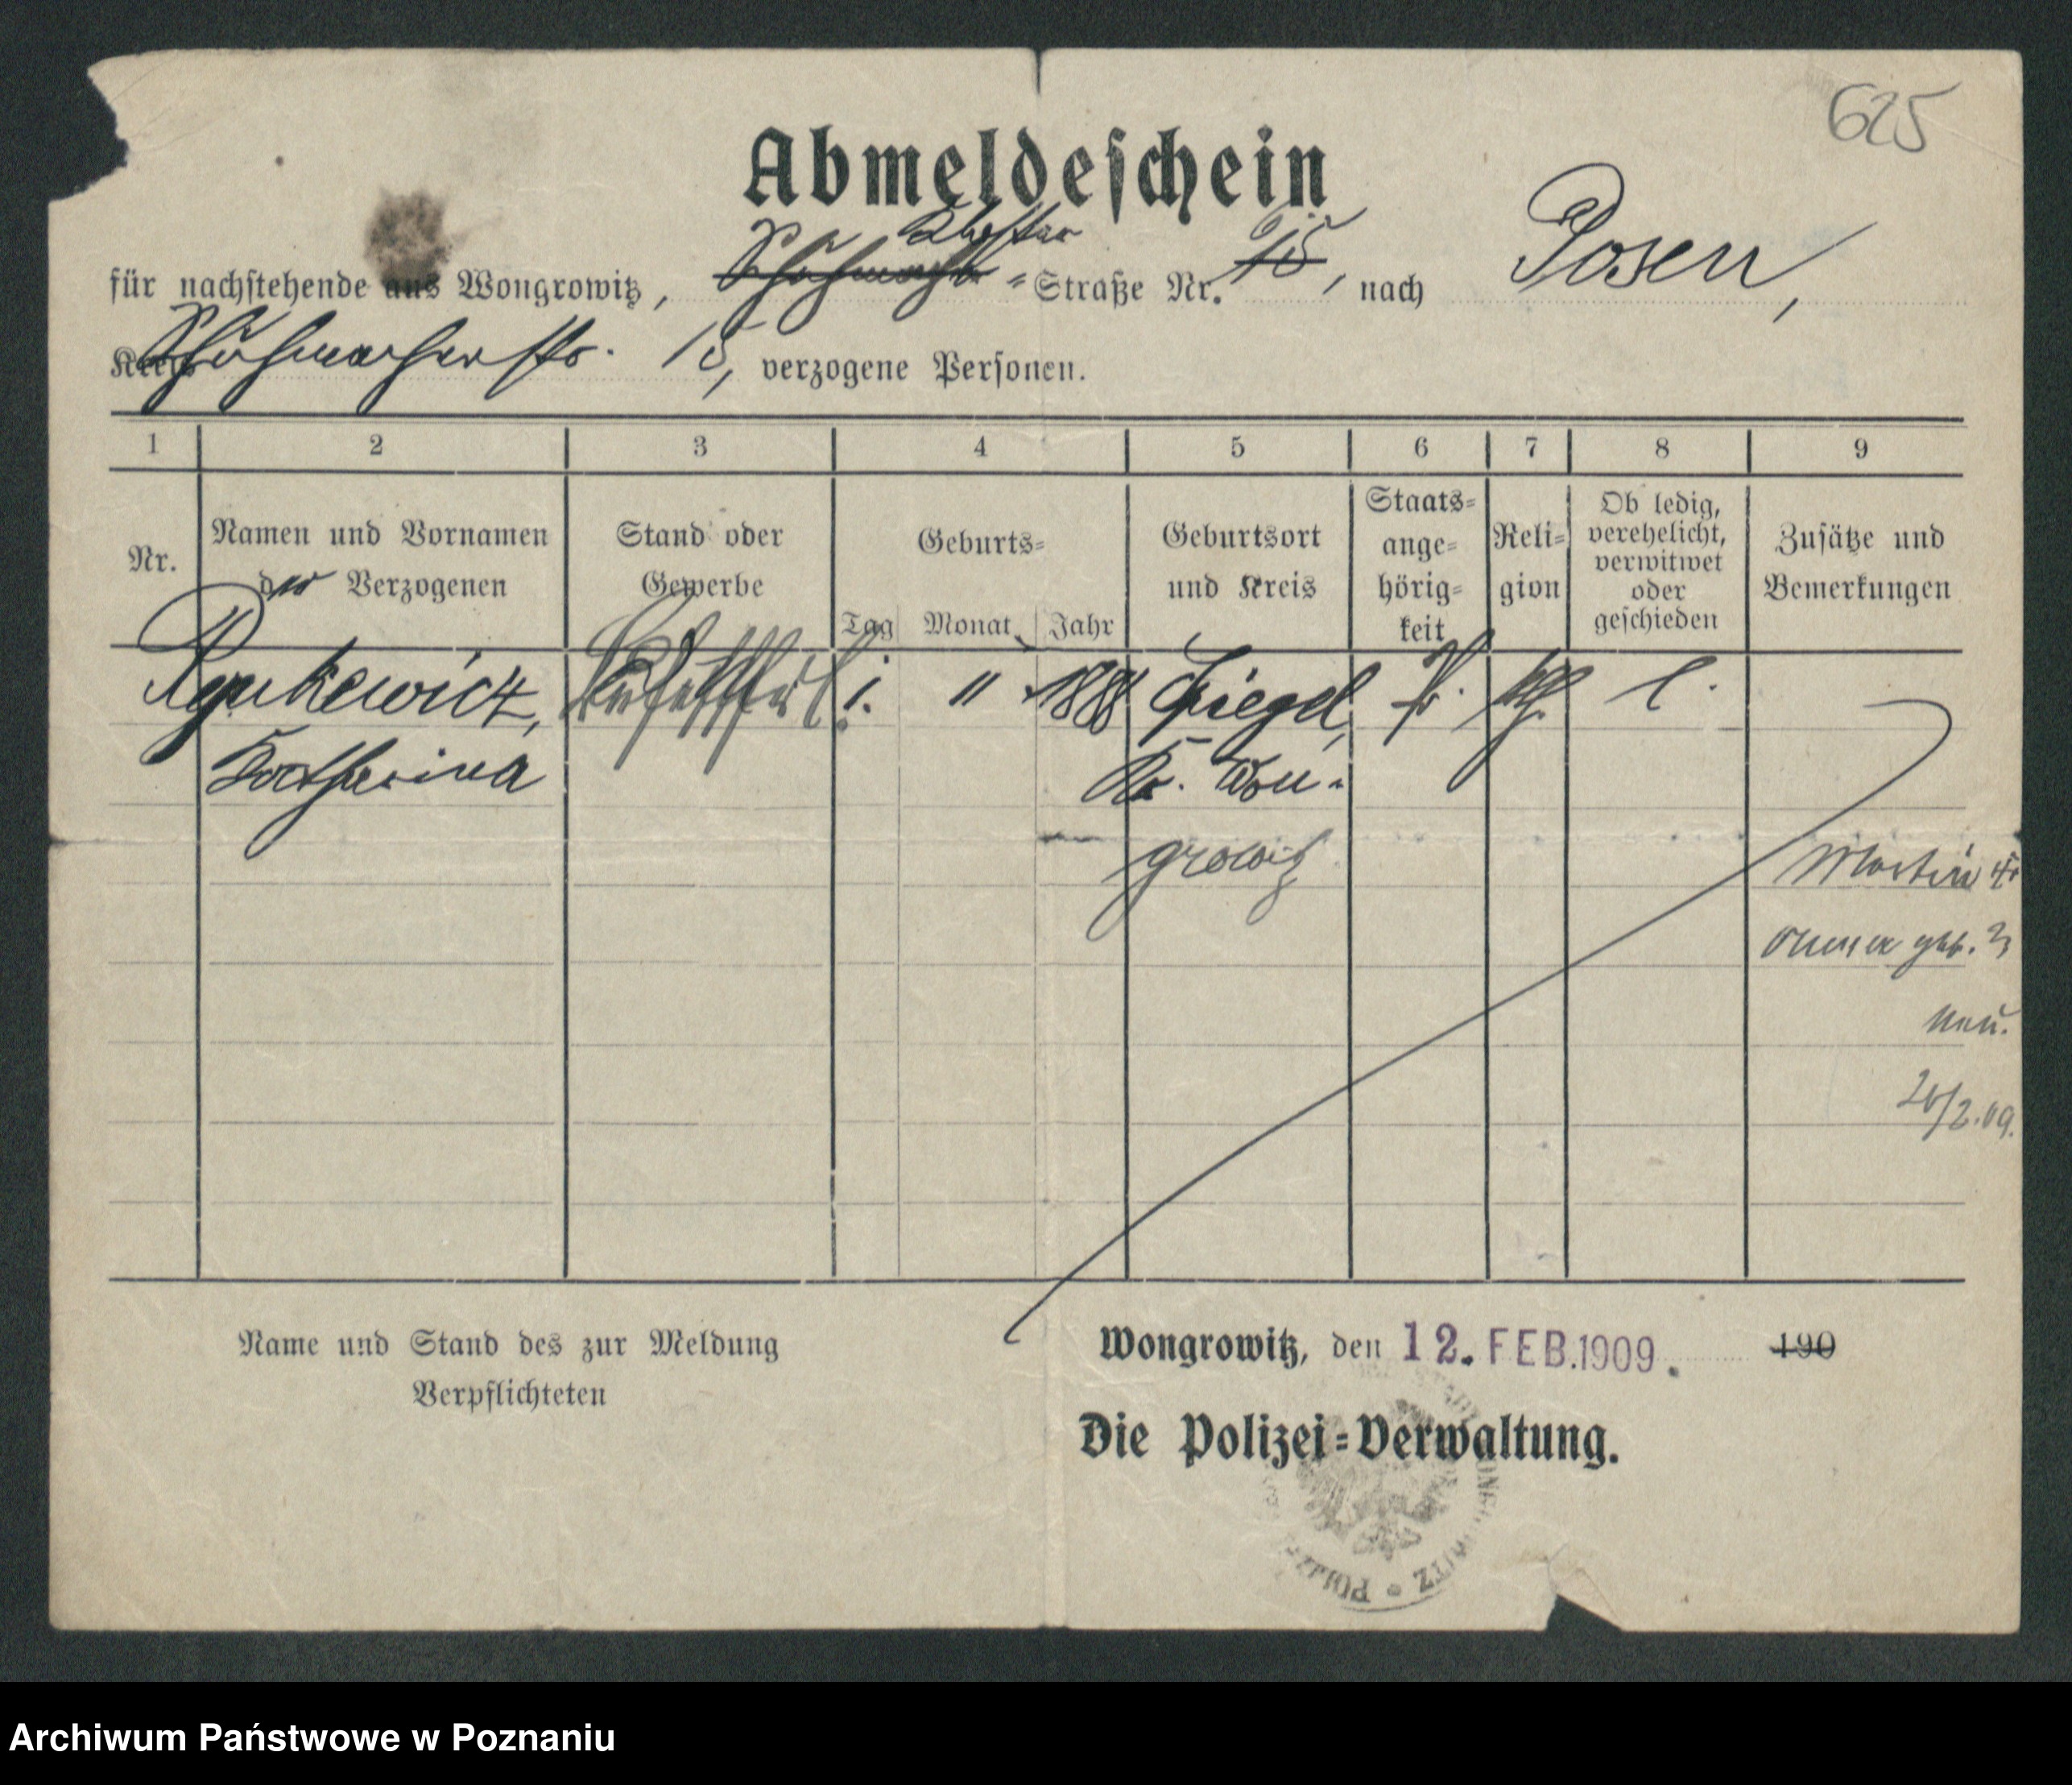 625
Abmeldeschein
Kloster
für nachstehende aus Wongrowitz, Schuhmacher=Straße Nr. 15, nach Posen,
Kreis Schuhmacherstr. 15, verzogene Personen.
1 2 3 4 5 6 7 8 9
Nr. Namen und Vornamen der Verzogenen Stand oder Gewerbe Geburts= Tag Monat Jahr Geburtsort und Kreis Staats=ange=hörig=keit Reli=gion Ob ledig, verehelicht, verwitwet oder geschieden Zusätze und Bemerkungen
1. 11 1888 l.
Katharina Kr. Won-
growitz
Martin
geb.
2.09.
Name und Stand des zur Meldung
Verpflichteten
Wongrowitz, den 12. FEB. 1909. 190
Die Polizei=Verwaltung.
Archiwum Państwowe w Poznaniu